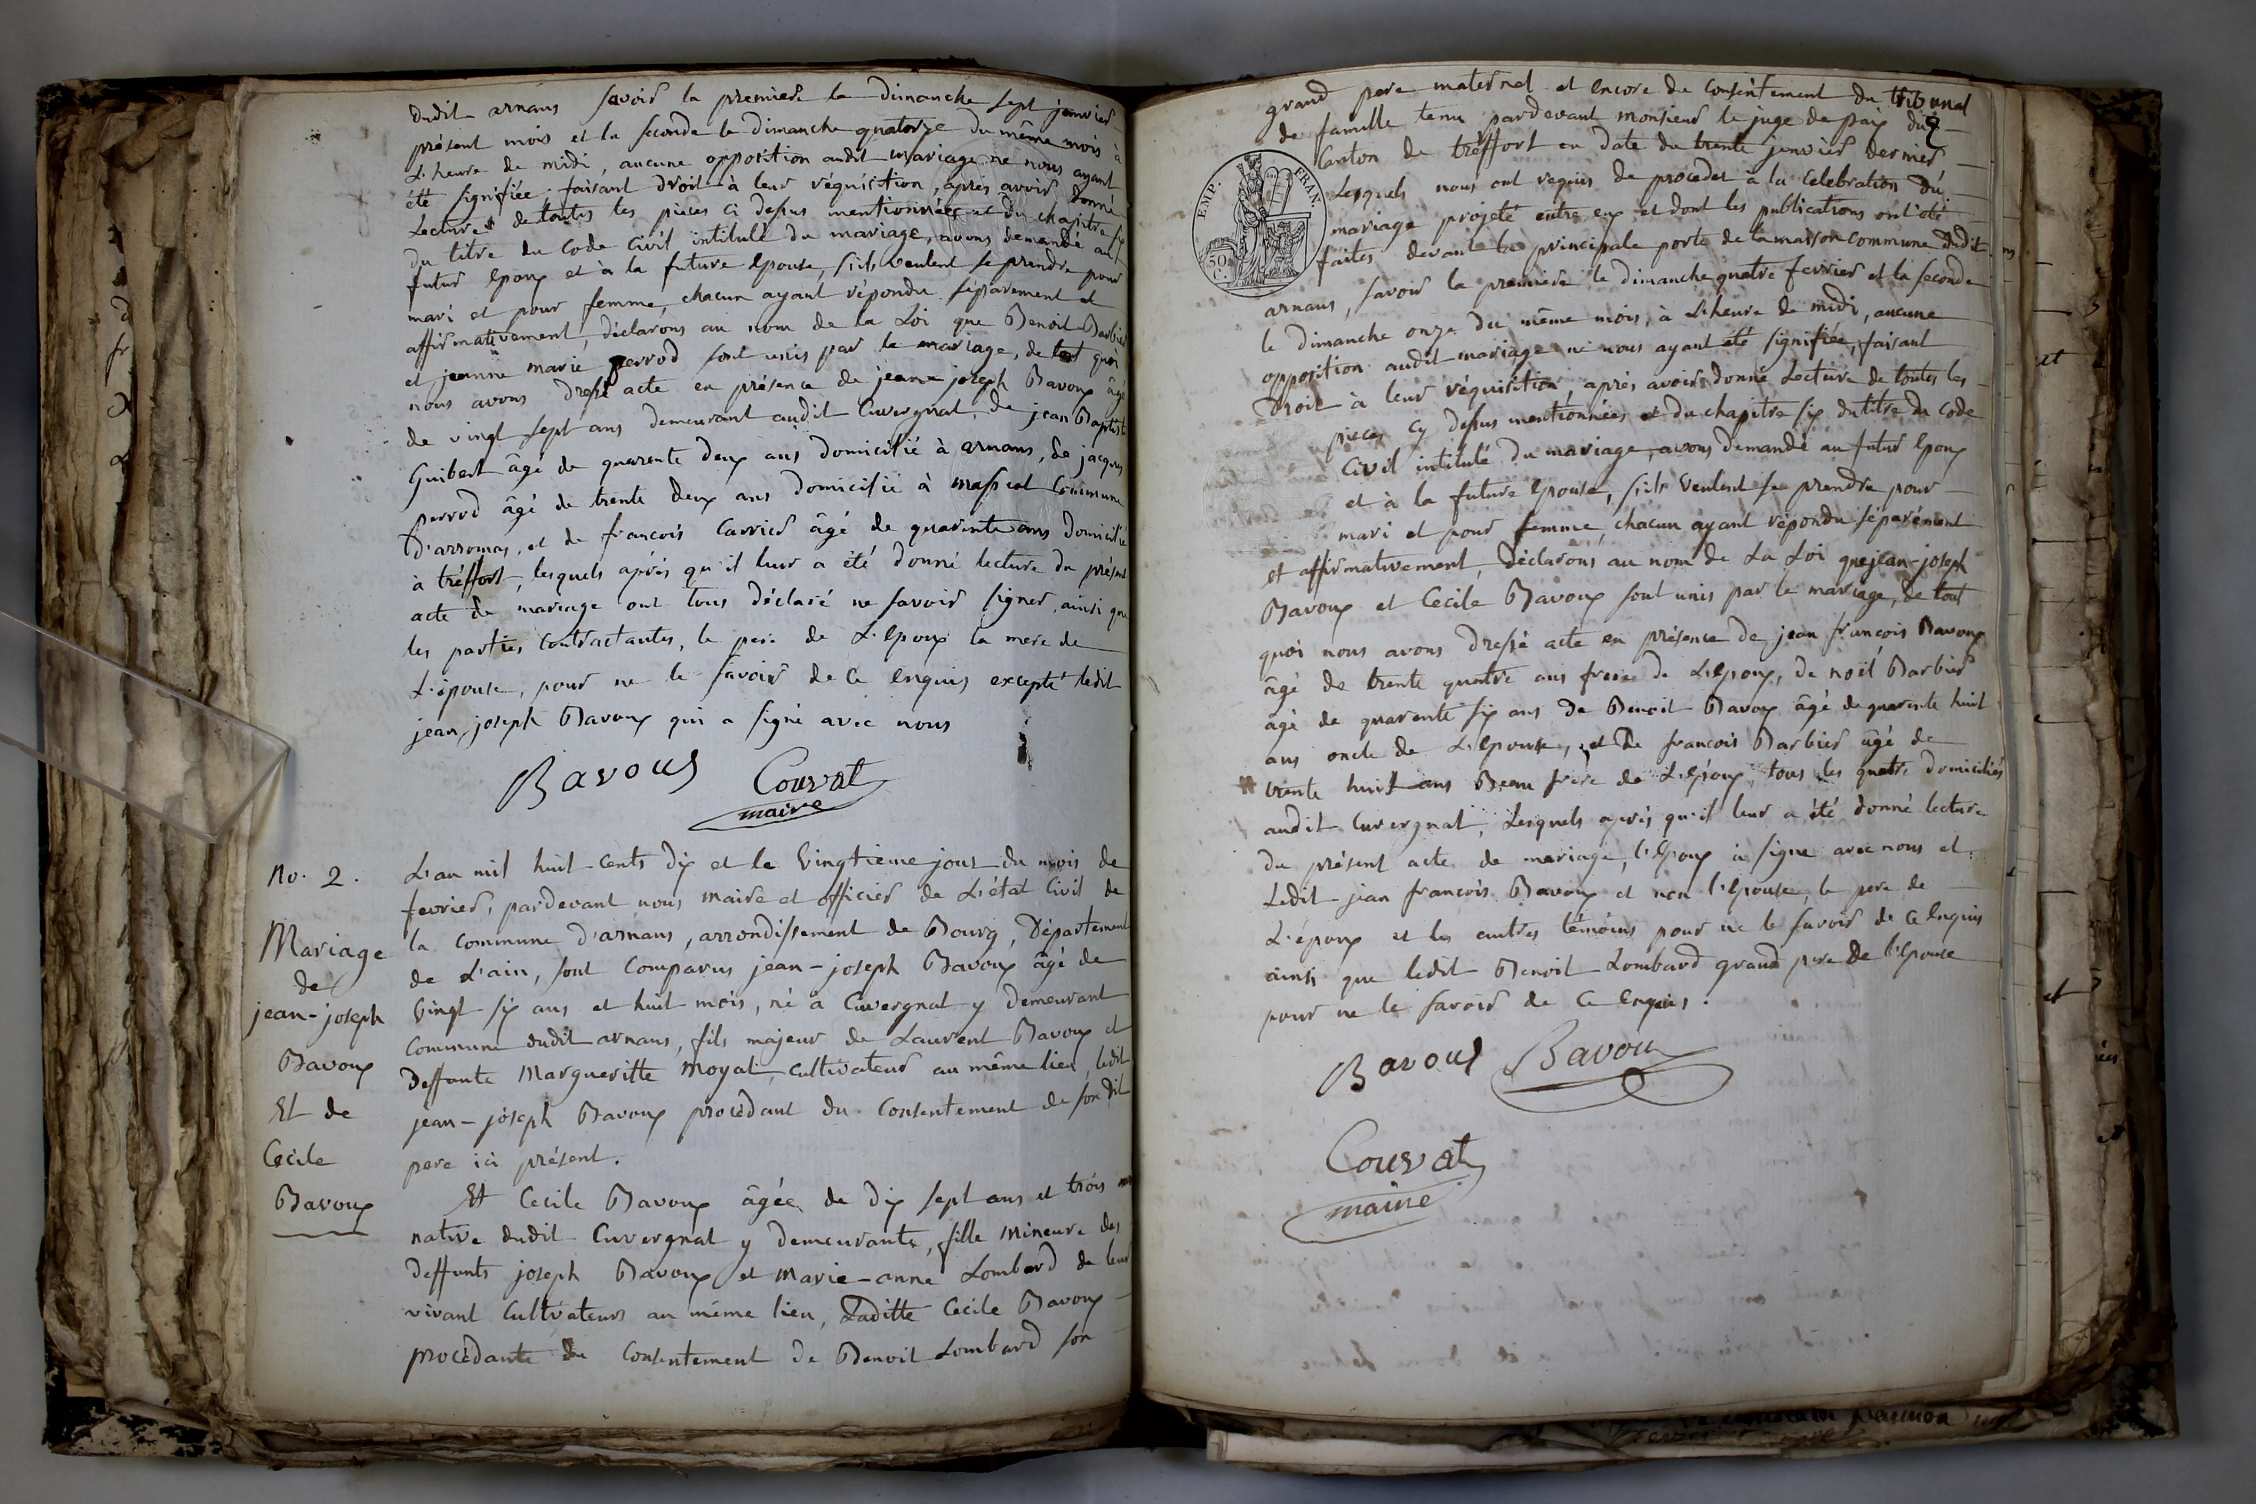 dudit arnans savoir la premiere le dimanche sept janvier
présent mois et la seconde le dimanche quatorze du même mois à
L'heure de midi, aucune opposition audit mariage ne nous ayant
été signifiée faisant droit à leur réquisition, après avoir donné
Lecture de toutes les pièces ci dessus mentionnées et du chapitre six
du titre du Code Civil intitulé du mariage, avons demandé au
futur Epoux et à la future Epouse, s'ils veulent se prendre pour
mari et pour femme, chacun ayant répondu séparement et
affirmativement, déclarons au nom de la Loi que Benoit Barbier
et jeanne marie perrod sont unis par le mariage, de tout quoi
nous avons dressé acte en présence de jean joseph Bavoux âgé
de vingt sept ans demeurant audit Cuvergnat, de jean Baptiste
Guibert âgé de quarente deux ans domicilié à arnans, de jacques
perrod âgé de trente deux ans domicilié à massiat Commune
D'arromas, et de francois Carrier âgé de quarente ans domicilié
à tréffort, lesquels après qu'il leur a été donné lecture du présent
acte de mariage ont tous déclaré ne savoir signer, ainsi que
les parties Contractantes, le pere de L'Epoux la mere de
L'épouse, pour ne le savoir de Ce Enquis excepté ledit
jean, joseph Bavoux qui a signé avec nous
Bavoux Couvat
maire
No. 2.
Mariage
de
jean-joseph
Bavoux
Et de
Cécile
Bavoux
L'an mil huit-cents dix et le Vingtieme jour du mois de
fevrier, pardevant nous maire et officier de L'état Civil de
la Commune D'arnans, arrondissement de Bourg, Département
de L'ain, sont Comparus jean-joseph Bavoux âgé de
Vingt six ans et huit mois, né à Cuvergnat y demeurant
Commune dudit arnans, fils majeur de Laurent Bavoux et
deffunte Margueritte Moyat, cultivateur au même lieu, ledit
jean-joseph Bavoux procédant du Consentement de son dit
pere ici présent.
Et Cecile Bavoux âgée de dix sept ans et trois
native dudit Cuvergnat y demeurante, fille mineure des
deffunts joseph Bavoux et Marie-anne Lombard de leur
vivant Cultivateurs au même lieu, Laditte Cécile Bavoux
procédante du Consentement de Benoit Lombard son
grand pere maternel et encore du Consentement du tribunal
de famille tenu pardevant monsieur le juge de paix du
Canton de tréffort en date du trente janvier dernier
Lesquels nous ont requis de procéder à la Celebration du
mariage projeté entre eux et dont les publications ont été
faites devant la principale porte de la maison Commune dudit
EMP. FRAN.
50 C.
arnans, savoir la premiere le dimanche quatre fevrier et la seconde
le dimanche onze du même mois, à L'heure de midi, aucune
opposition audit mariage ne nous ayant été signifiée, faisant
Droit à leur réquisition après avoir donné Lecture de toutes les
pieces Cy dessus mentionnées et du chapitre six du titre du Code
Civil intitulé du mariage, avons demandé au futur Epoux
et à la future Epouse, s'ils veulent se prendre pour
mari et pour femme, chacun ayant répondu séparément
et affirmativement, déclarons au nom de La Loi que jean-joseph
Bavoux et Cecile Bavoux sont unis par le mariage, de tout
quoi nous avons dressé acte en présence de jean françois Bavoux
âgé de trente quatre ans frere de L'Epoux, de noël Barbier
âgé de quarente six ans de Benoit Bavoux âgé de quarente huit
ans oncle de L'Epouse, et de francois Barbier âgé de
trente huit ans Beau frere de L'époux, tous les quatre domiciliés
audit Cuvergnat, Lesquels après qu'il leur a été donné lecture
du présent acte de mariage, l'Epoux a signé avec nous et
Ledit jean françois Bavoux et non l'Epouse, le pere de
L'époux et les autres témoins pour ne le savoir de Ce Enquis
ainsi que ledit Benoit Lombard grand pere de l'Epouse
pour ne le savoir de Ce Enquis.
Bavoux Bavoux
Couvat
maire